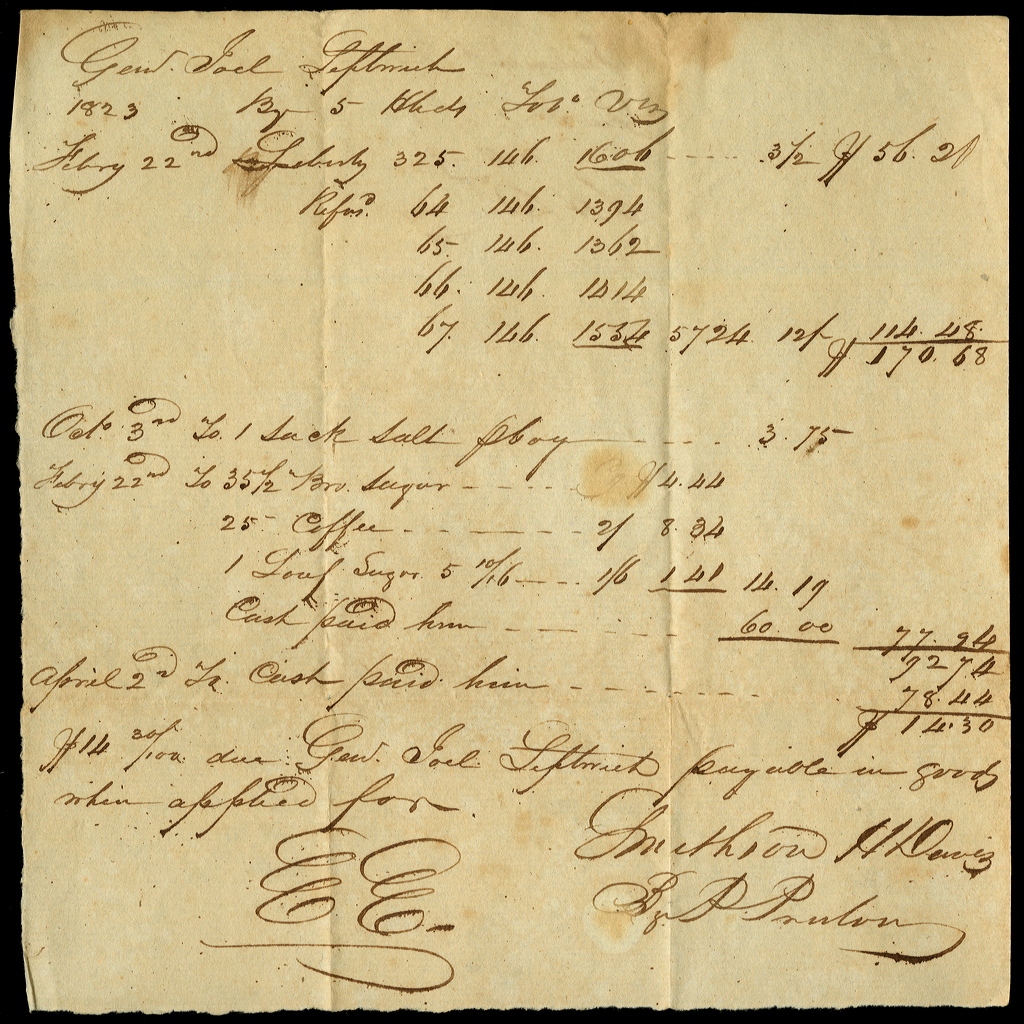 Genl. Joel Leftwich
1823 By 5 Hhds Tobo Viz
Febry 22nd Liberty 325. 146. 1606 - - - - 3 1/2 $ 56. 20
Refusd. 64 146. 1394
65. 146. 1362
66. 146. 1414
67. 146. 1554 5724 12/ 114. 48.
$ 170. 68
Octo. 3rd To. 1 Sack Salt pboy - - - - 3. 75
Febry 22nd To 35 1/2 Bro. Sugar - - - - $4. 44
25 Coffee - - - - - 2/ 8. 34
1 Loaf Sugar 5 10/16 - - - 1/6 1 41 14. 19
Cash paid him - - - - - - 60. 00 77. 94
92 74
April 2nd To. Cash paid him - - - - - - - 78. 44
$ 14. 30
$14 30/100 due Genl. Joel Leftwich payable in goods
when applied for
Smithson & Davis
EE
By P Preston